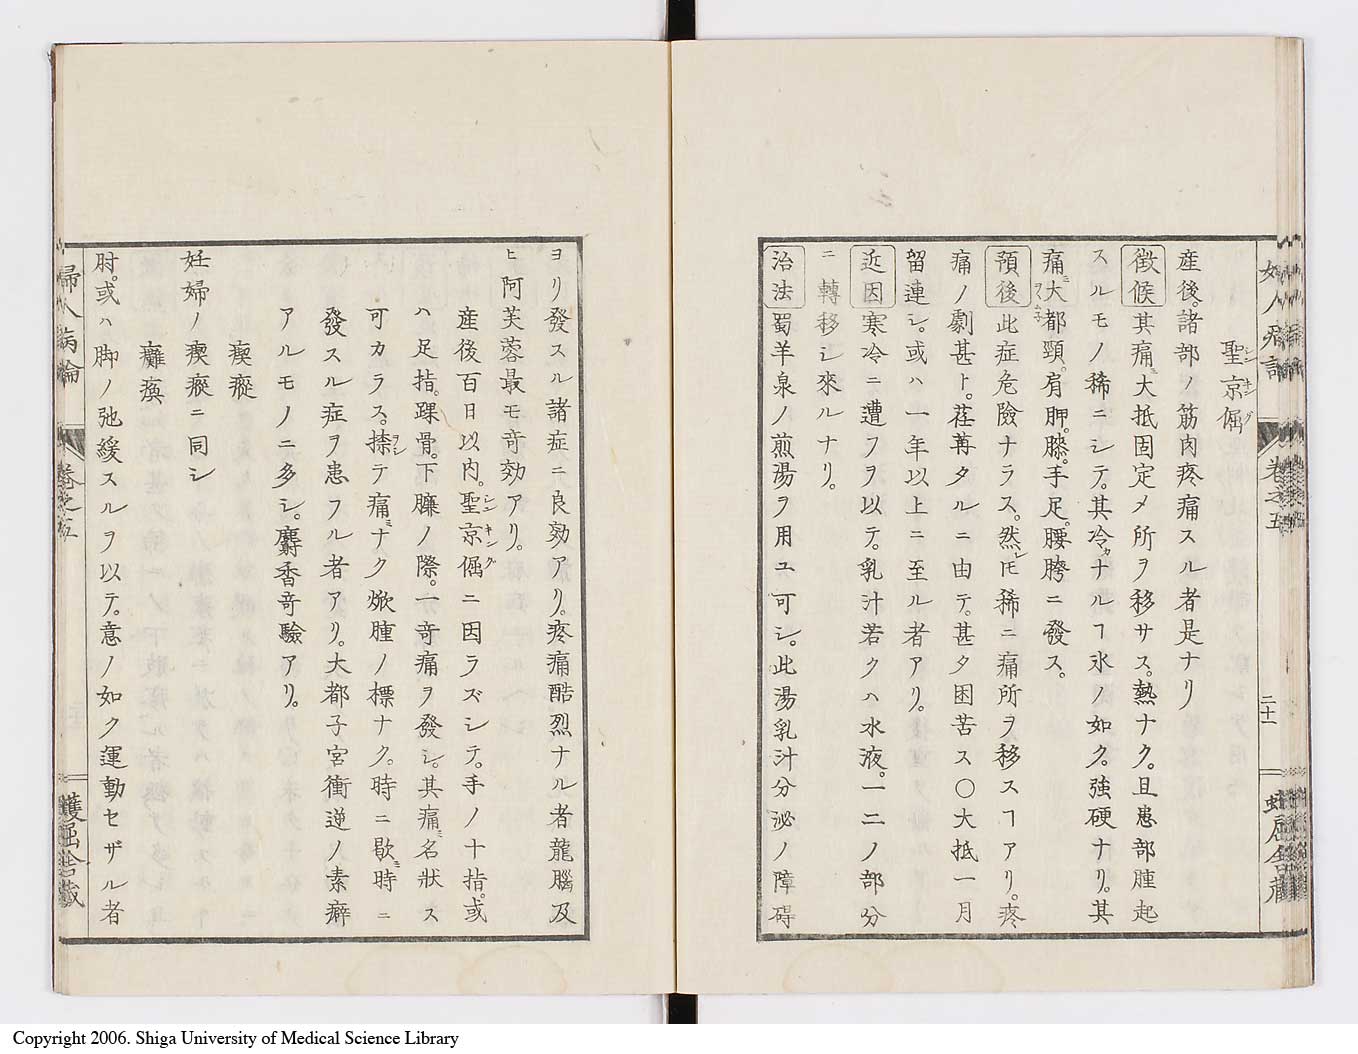 聖京倔
シンキング
産後。諸部ノ筋肉疼痛スル者是ナリ
徴候其痛ミ大抵固定メ所ヲ移サス。熱ナク。且患部腫起
スルモノ稀ニシテ。其冷カナルヿ氷ノ如ク。強硬ナリ。其
痛ミ大都頸。肩胛。膝。手足。腰胯ニ發ス。
預後此症危險ナラス。然レ𪜈稀ニ痛所ヲ移スヿアリ。疼
痛ノ劇甚ト。荏苒タルニ由テ。甚タ困苦ス〇大抵一月
留連シ。或ハ一年以上ニ至ル者アリ。
近因寒冷ニ遭フヲ以テ。乳汁若クハ水液。一二ノ部分
ニ轉移シ來ルナリ。
治法蜀羊泉ノ煎湯ヲ用ユ可シ。此湯乳汁分泌ノ障碍
卷之五
二十一
ヨリ發スル諸症ニ良効アリ。疼痛酷烈ナル者龍腦及
ヒ阿芙蓉最モ竒効アリ。
産後百日以内。聖京倔ニ因ラズシテ。手ノ十指。或
シンキング
ハ足指。踝骨。下臁ノ際。一竒痛ヲ發シ。其痛ミ名狀ス
可カラス。捺シテ痛ミナク焮腫ノ標ナク。時ニ歇ミ時ニ
發スル症ヲ患フル者アリ。大都子宮衝逆ノ素癖
アルモノニ多シ。麝香竒驗アリ。
瘈瘲
妊婦ノ瘈瘲ニ同シ
癱瘓
肘。或ハ脚ノ弛緩スルヲ以テ。意ノ如ク運動セザル者
婦人病論
卷之五
Copyright 2006. Shiga University of Medical Science Library